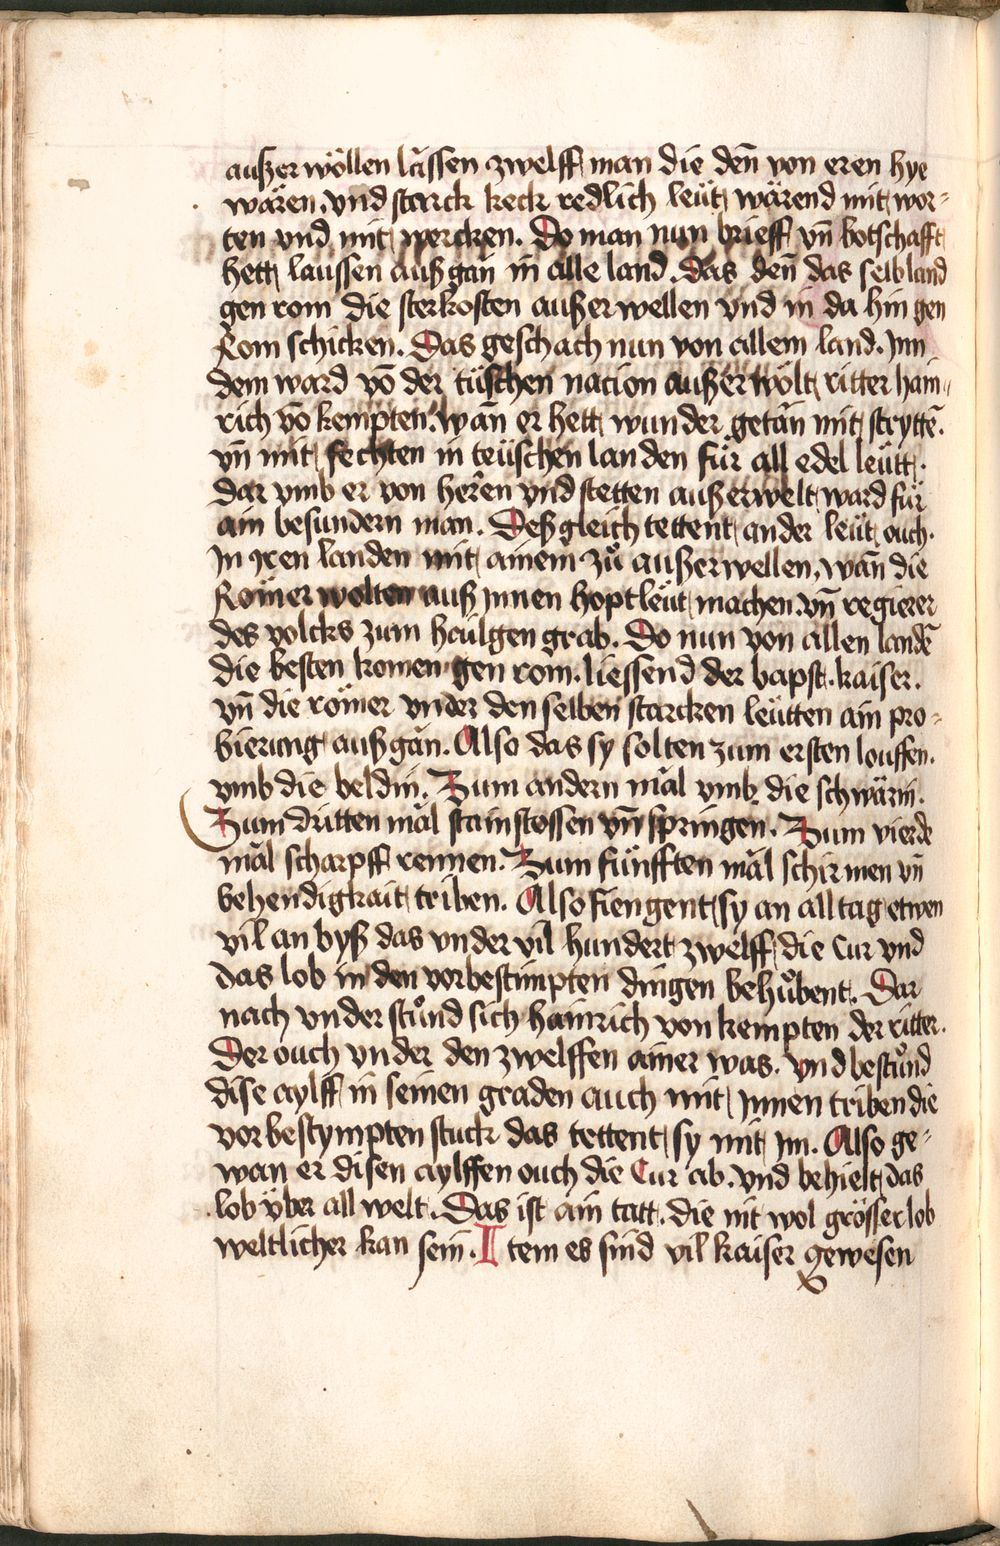 außerwöllen lässen zwelff man die deñ von eren hye
wären. vnd starck keck redlich leüt wärend mit wor-
ten vnd mit wercken. Do man nun brieff vñ botschafft
hett laussen auß gän in alle land. Das deñ das selb land
gen rom die sterkosten außerwellen vnd in da hin gen
Rom schicken. Das geschach nun von allem land. Inn
dem ward vō der tüschen nacion außerwölt ritter hain-
rich vō kempten. wañ er hett wunder getän mit stryttē.
vñ mit fechten in teüschen landen für all edel leütt.
dar vmb er von heren vnd stetten außerwelt ward für
ain besundern man. Deß gleich tettent ander leüt ouch.
In Iren landen mit ainem zů außerwellen, wañ die
Römer wolten auß Innen hoptleüt machen. vñ regierer
des volcks zum hailgen grab. Do nun von allen landē
die besten komen gen rom. liessend der bapst. kaiser.
vñ die römer vnder den selben starcken leütten ain pro-
bierung auß gän. Also das sy solten zum ersten louffen.
vmb die beldin. Zum andern mäl vmb die schwärin.
Zum dritten mäl stain stossen vñ springen. Zum vierdē
mäl scharpff rennen. Zum fünfften mäl schirmen vñ
behendigkait triben. Also fiengent sy an all tag etwen
vil an byß das vnder vil hundert zwelff die Cur vnd
das lob in den vorbestimpten dingen behůbent. Dar
nach vnder stůnd sich hainrich von kempten der ritter.
Der ouch vnder den zwelffen ainer was. vnd bestůnd
dise aylff in seinen graden auch mit Innen triben die
vorbestympten stuck das tettent sy mit im. Also ge-
wan er disen aylffen ouch die Cur ab. vnd behielt das
lob über all welt. Das ist ain tatt. die nit wol grösser lob
weltlicher kan sein. Item es sind vil kaiser gewesen